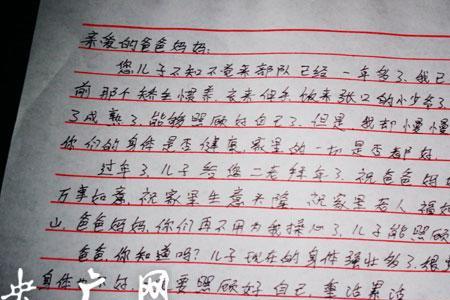 亲爱的爸爸妈妈:
您儿子不知不觉来部队已经一年多了,我已
前那个娇生惯养,衣来伸手,饭来张口的小少爷了
了成熟了,能够照顾好自己了,但是,我却慢慢
你们的身体是否健康,家里的一切是否都好,
过年了,儿子给您二老拜年了,祝爸爸妈妈
万事如意,祝家里生意兴隆,祝家里老人福如
山,爸爸妈妈,你们再不用为我操心了,儿子能照顾
爸爸,你知道吗?儿子现在的身体强壮多了,根
身体 好 要照顾好自己
央广网